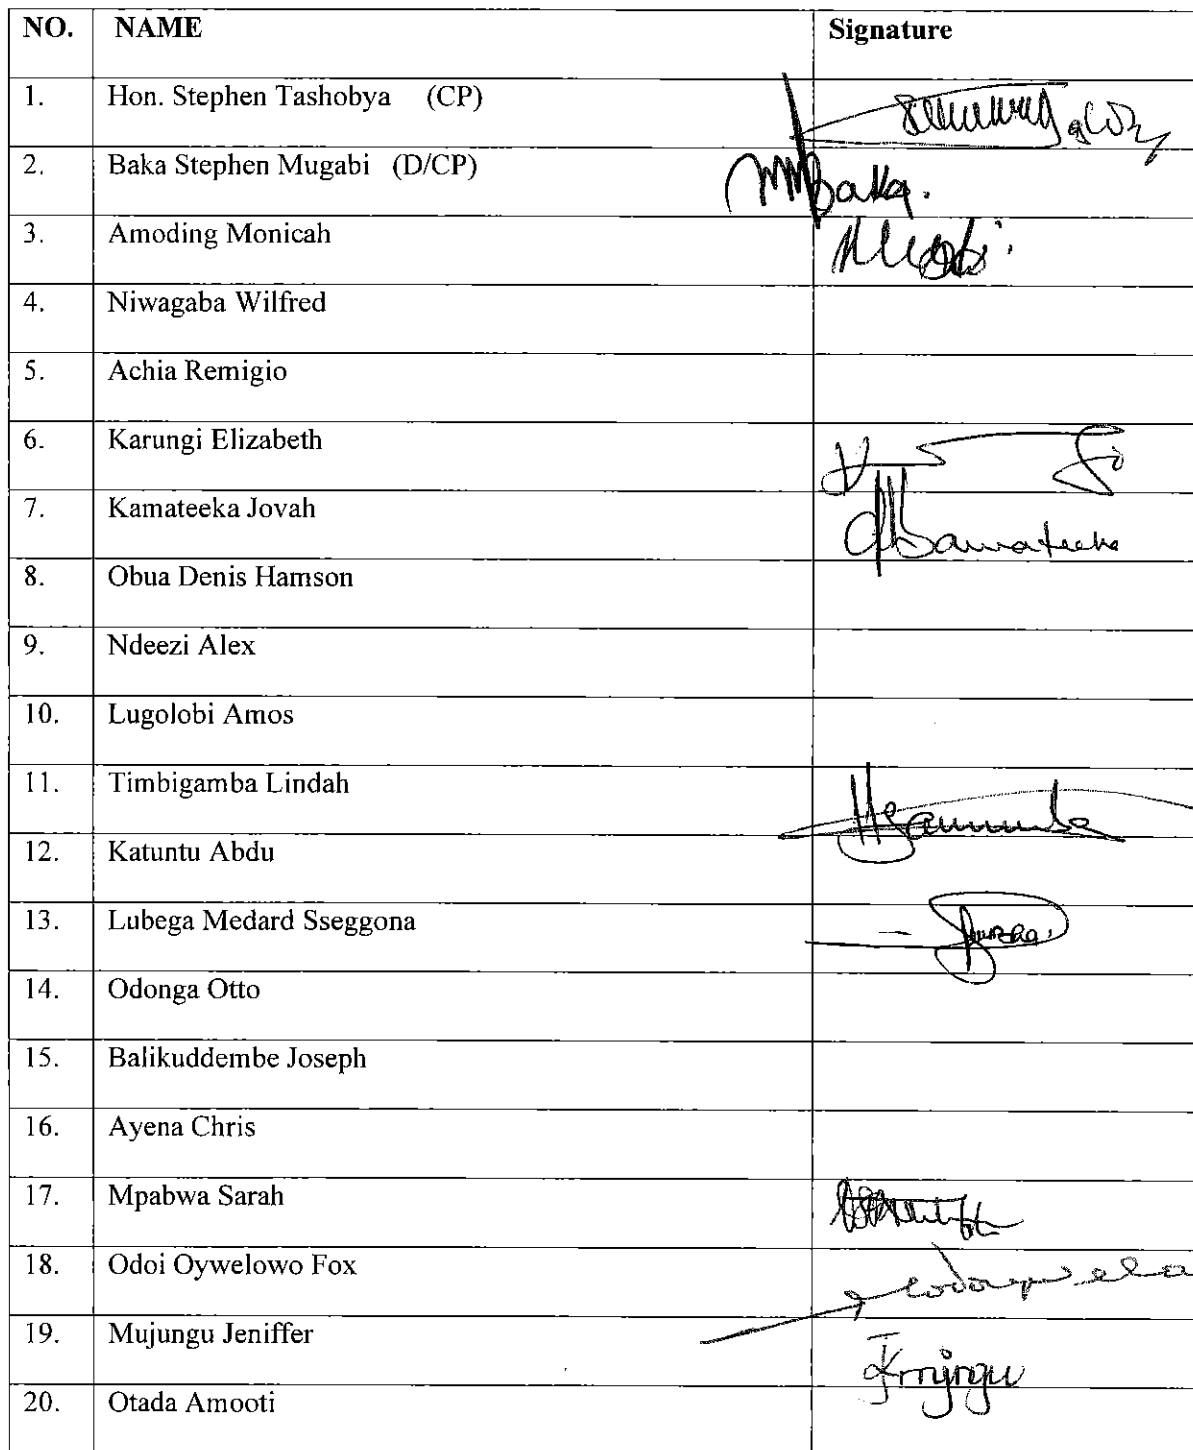 NO. NAME Signature
1. Hon. Stephen Tashobya (CP)
2. Baka Stephen Mugabi (D/CP) Baka.
3. Amoding Monicah
4. Niwagaba Wilfred
5. Achia Remigio
6. Karungi Elizabeth
7. Kamateeka Jovah Kamateeka
8. Obua Denis Hamson
9. Ndeezi Alex
10. Lugolobi Amos
11. Timbigamba Lindah
12. Katuntu Abdu
13. Lubega Medard Sseggona
14. Odonga Otto
15. Balikuddembe Joseph
16. Ayena Chris
17. Mpabwa Sarah
18. Odoi Oywelowo Fox
19. Mujungu Jeniffer
20. Otada Amooti